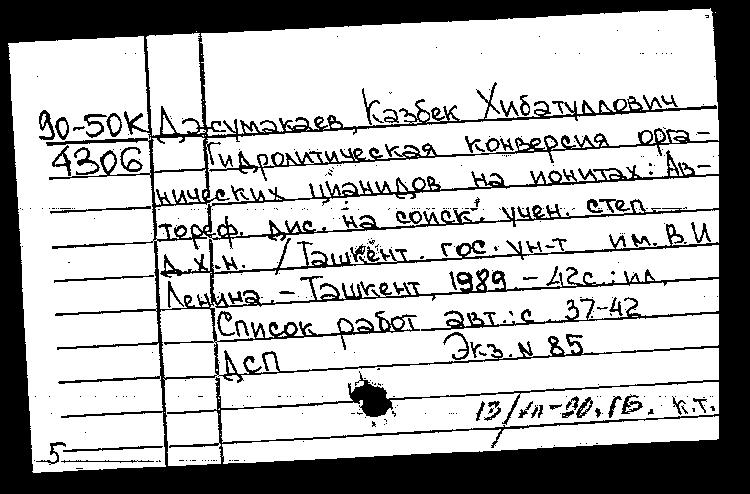 90-50К Джумакаев, Казбек Хибатуллович
4306 Гидролитическая конверсия орга-
нических цианидов на ионитах: Ав-
тореф. дис. на соиск. учен. степ.
д.х.н. / Ташкент. гос. ун-т им. В.И
Ленина. - Ташкент, 1989 - 42с.: ил.
Список работ авт.: с. 37-42
ДСП Экз. N 85
13/VII-90. ГБ. к.т.
5